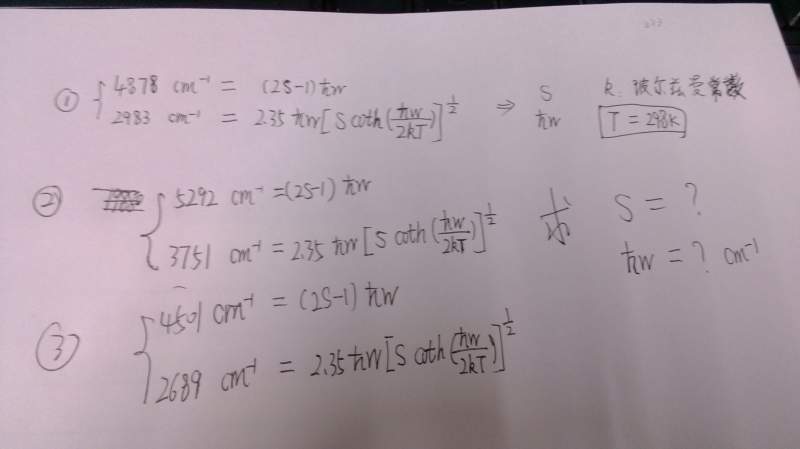 ① { 4378 cm⁻¹ = (2S-1) ħw
2983 cm⁻¹ = 2.35 ħw [S coth(ħw/2kT)]^½ ⇒ S ħw
k: 波尔兹曼常数
T = 298K
② { 5292 cm⁻¹ = (2S-1) ħw
3751 cm⁻¹ = 2.35 ħw [S coth(ħw/2kT)]^½
求 S = ?
ħw = ? cm⁻¹
③ { 4501 cm⁻¹ = (2S-1) ħw
2689 cm⁻¹ = 2.35 ħw [S coth(ħw/2kT)]^½